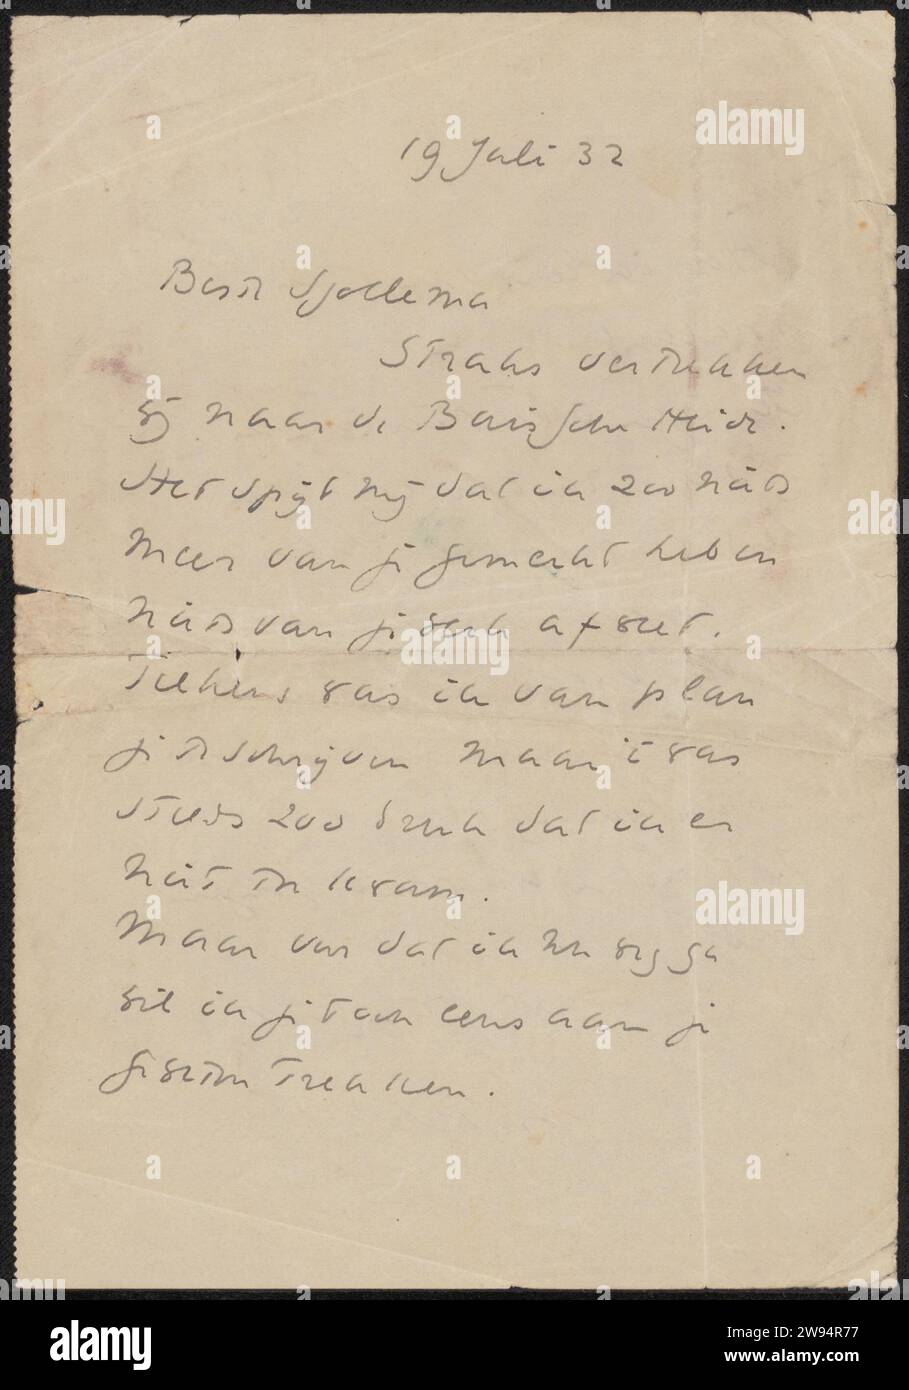 19 Juli 32
Beste Sjollema
Straks vertrekken
wij naar de Heide.
Het spijt mij dat ik zoo niets
meer van je gemerkt heb en
niets van je werk afweet.
Telkens was ik van plan
je te schrijven maar 't was
steeds zoo druk dat ik er
niet toe kwam.
Maar voor dat ik nu weg ga
wil ik je toch eens aan je
geweten trekken.
alamy
Image ID: 2W94R77
www.alamy.com